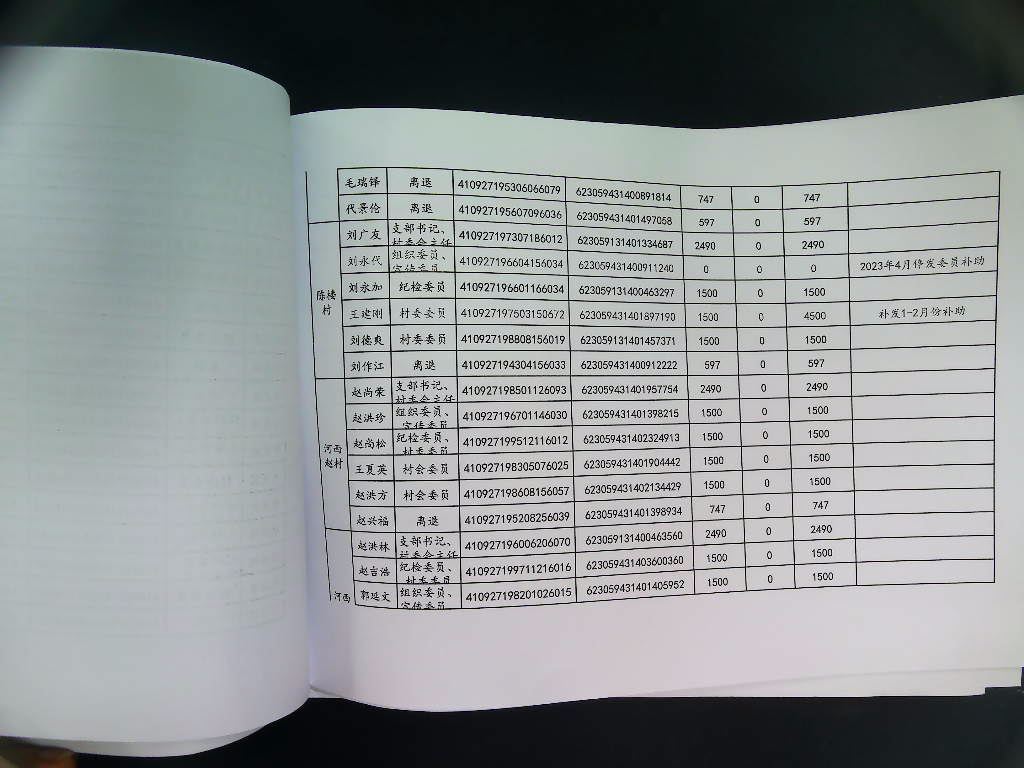 毛瑞铎 离退 410927195306066079 623059431400891814 747 0 747
代景伦 离退 410927195607096036 623059431401497058 597 0 597
陈楼村
刘广友 支部书记、村委会主任 410927197307186012 623059131401334687 2490 0 2490
刘永代 组织委员、宣传委员 410927196604156034 623059431400911240 0 0 0 2023年4月停发委员补助
刘永加 纪检委员 410927196601166034 623059131400463297 1500 0 1500
王建刚 村委委员 410927197503150672 623059431401897190 1500 0 4500 补发1-2月份补助
刘德爽 村委委员 410927198808156019 623059131401457371 1500 0 1500
刘作江 离退 410927194304156033 623059431400912222 597 0 597
河西赵村
赵尚荣 支部书记、村委会主任 410927198501126093 623059431401957754 2490 0 2490
赵洪珍 组织委员、宣传委员 410927196701146030 623059431401398215 1500 0 1500
赵尚松 纪检委员、村委委员 410927199512116012 623059431402324913 1500 0 1500
王夏英 村会委员 410927198305076025 623059431401904442 1500 0 1500
赵洪方 村会委员 410927198608156057 623059431402134429 1500 0 1500
赵兴福 离退 410927195208256039 623059431401398934 747 0 747
河西
赵洪林 支部书记、村委会主任 410927196006206070 623059131400463560 2490 0 2490
赵言浩 纪检委员、村委委员 410927199711216016 623059431403600360 1500 0 1500
郭延文 组织委员、宣传委员 410927198201026015 623059431401405952 1500 0 1500